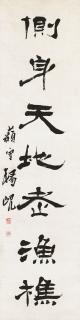 側身天地老漁樵